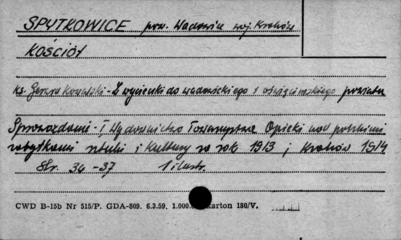 SPYTKOWICE pow. Wadowice woj. Kraków
KOŚCIÓŁ
Ks. Gerard Kowalski - Z wycieczki do wadowickiego i oświęcimskiego powiatu
Sprawozdanie - I Wydawnictwo Towarzystwa Opieki nad polskimi
zabytkami sztuki i kultury za rok 1913 ; Kraków 1914
Str. 34-37 1 ilustr.
CWD B-15b Nr 515/P. GDA-809. 6.3.59. 1.000. karton 180/V.